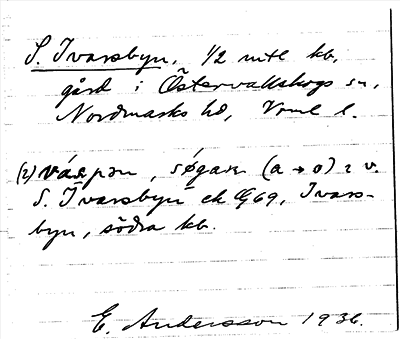 S. Ivarsbyn, 1/2 mtl kb.
gård i Östervallskogs sn,
Nordmarks hd, Vrml l.
(2) váspǝn, søgasn (a → o) 2 v.
S. Ivarsbyn ek G69, Ivars-
byn, södra kb.
E. Andersson 1936.